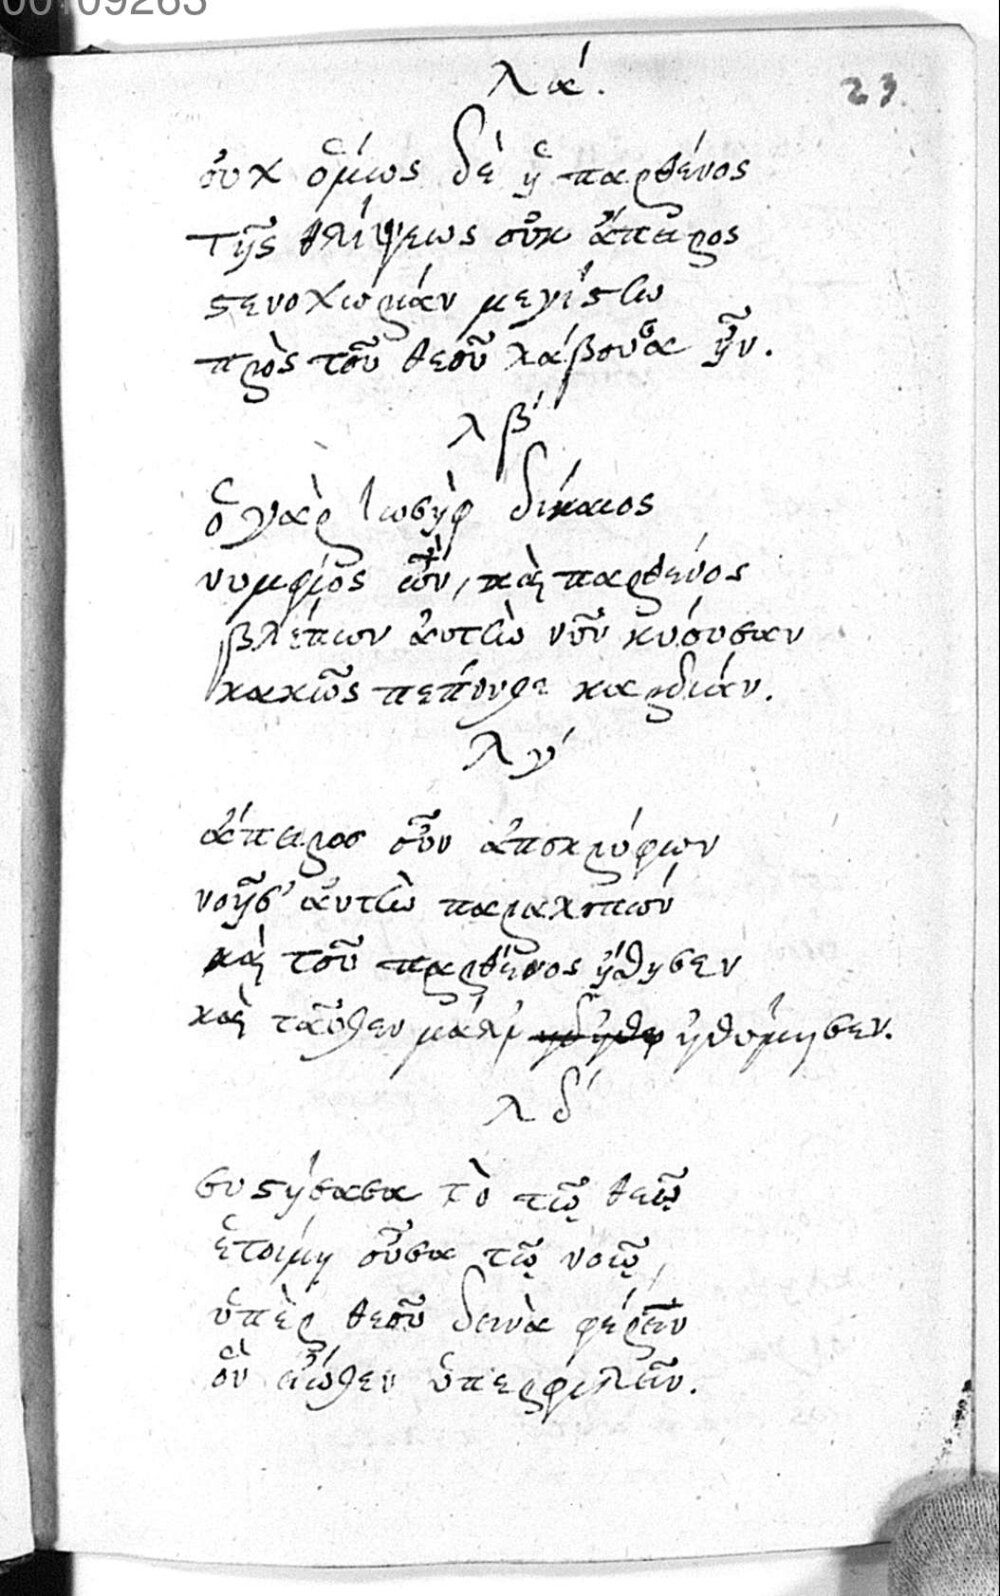 00109263
23
λα΄.
ὀυχ ὁμίως δὲ ἡ παρθένος
τῆς θλίψεως οὐκ ἄπειρος
στενοχωρίαν μεγίστω
πρὸς τοῦ θεοῦ λάβουσα ἦν.
λβ΄
ὁ γὰρ Ἰωσὴφ δίκαιος
νυμφίος ὢν, καὶ παρθένος
βλέπων ἀυτὼ νῦν κύουσαν
κακῶς πέπονθε καρδιάν.
λγ΄
ἄπειρος οὖν ἀποκρύφων
νοῆσ' ἀυτὼ παραλιπὼν
καὶ τοῦ παρθένος ἤθησεν
καὶ μάλ' ἠθύμησεν.
λδ΄
συστήσασα τὸ τῷ θεῷ
ἑτοίμη οὖσα τῷ νοῷ,
ὑπὲρ θεοῦ δεινὰ φέρειν
ὃν ὑπερφιλεῖν.